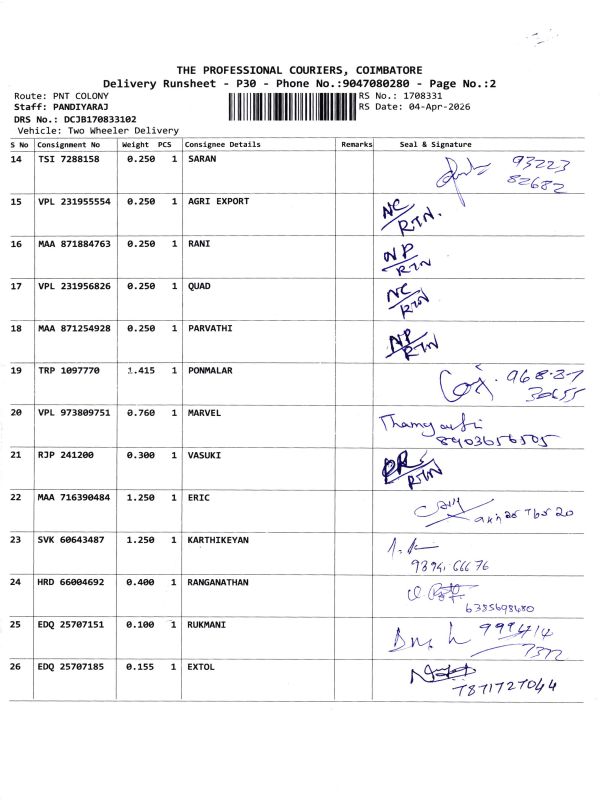 THE PROFESSIONAL COURIERS, COIMBATORE
Delivery Runsheet - P30 - Phone No.:9047080280 - Page No.:2
Route: PNT COLONY
RS No.: 1708331
Staff: PANDIYARAJ
RS Date: 04-Apr-2026
DRS No.: DCJB170833102
Vehicle: Two Wheeler Delivery
S No Consignment No Weight PCS Consignee Details Remarks Seal & Signature
14 TSI 7288158 0.250 1 SARAN 93223
82682
15 VPL 231955554 0.250 1 AGRI EXPORT NC
RTN.
16 MAA 871884763 0.250 1 RANI NP
RTN
17 VPL 231956826 0.250 1 QUAD NC
RTN
18 MAA 871254928 0.250 1 PARVATHI NP
RTN
19 TRP 1097770 1.415 1 PONMALAR 968-37
30655
20 VPL 973809751 0.760 1 MARVEL
8903656505
21 RJP 241200 0.300 1 VASUKI
RTN
22 MAA 716390484 1.250 1 ERIC
23 SVK 60643487 1.250 1 KARTHIKEYAN
24 HRD 66004692 0.400 1 RANGANATHAN
6385698480
25 EDQ 25707151 0.100 1 RUKMANI
26 EDQ 25707185 0.155 1 EXTOL
7871727044